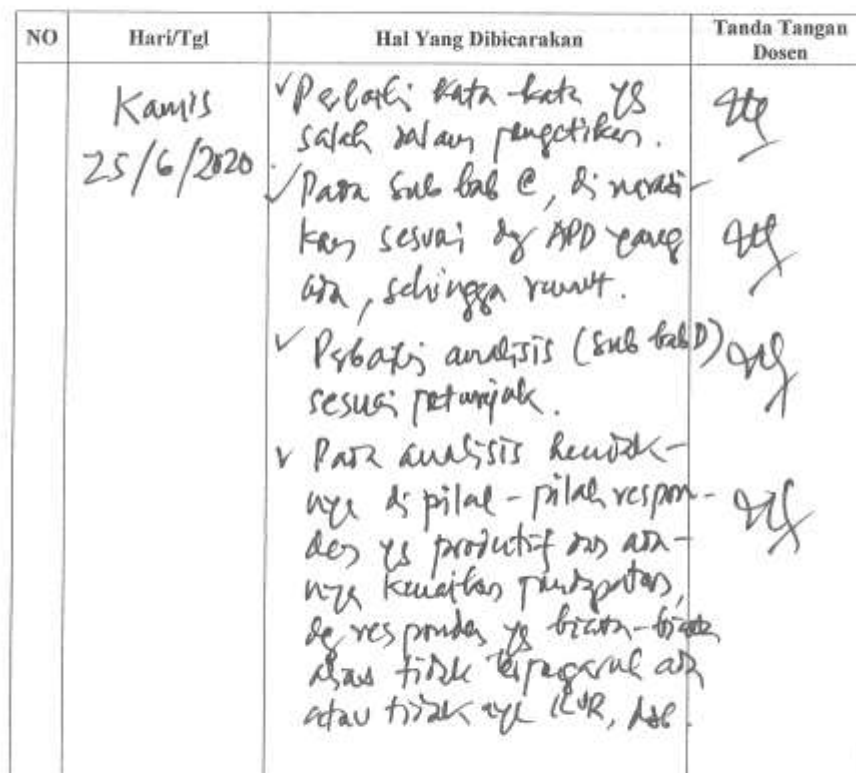 NO Hari/Tgl Hal Yang Dibicarakan Tanda Tangan Dosen
Kamis
25/6/2020
✓ Perbaiki kata-kata yg
salah dalam pengetikan.
✓ Pada sub bab C, di narasi-
kan sesuai dg APD yang
ada, sehingga runut.
✓ Perbaiki analisis (sub bab D)
sesuai petunjuk.
✓ Pada analisis hendak-
nya di pilah-pilah respon-
den yg produktif dan ada-
nya kenaikan pendapatan,
dg responden yg biasa-biasa
atau tidak terpengaruh ada
atau tidak nya KUR, dsb.